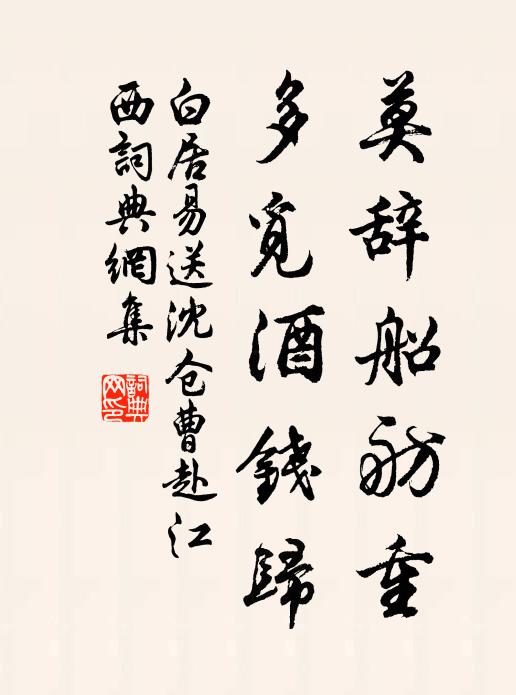 莫辞船舫重
多覓酒錢歸
白居易送沈仓曹赴江
西詞典網集
詞典网印